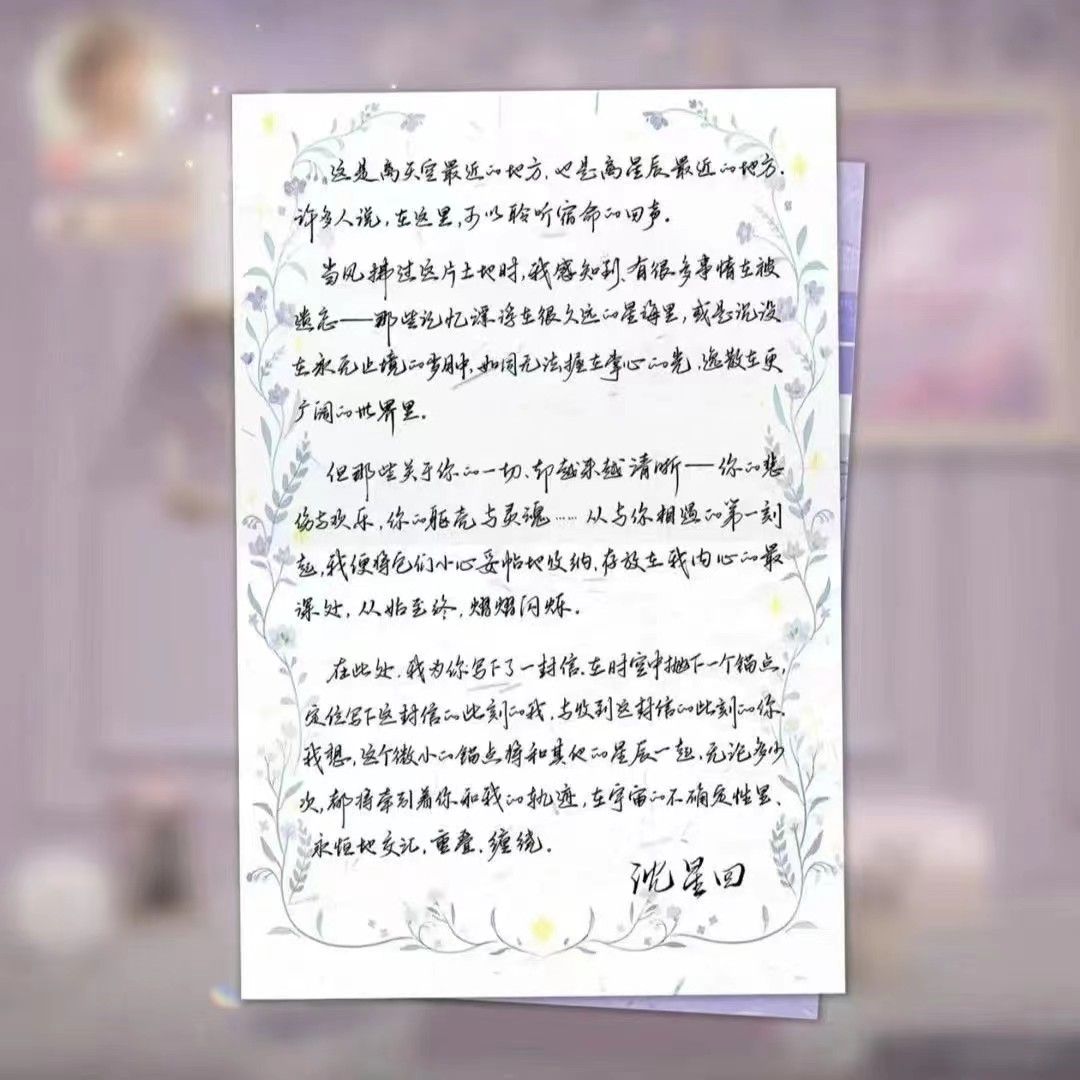 这是离天空最近的地方,也是离星辰最近的地方.
许多人说,在这里,可以聆听宿命的回声。
当风拂过这片土地时,我感知到、有很多事情在被
遗忘——那些记忆漂浮在很久远的星海里,或是沉没
在永无止境的岁月中,如同无法握在掌心的光,逸散在更
广阔的世界里。
但那些关于你的一切、却越来越清晰——你的悲
伤与欢乐,你的躯壳与灵魂……从与你相遇的第一刻
起,我便将它们小心妥帖地收纳,存放在我内心的最
深处,从始至终,熠熠闪烁。
在此处,我为你写下了一封信、在时空中抛下一个锚点,
定位写下这封信的此刻的我,与收到这封信的此刻的你.
我想,这个微小的锚点将和其他的星辰一起,无论多少
次,都将牵引着你和我的轨迹,在宇宙的不确定性里、
永恒地交汇,重叠,缠绕。
沈星回